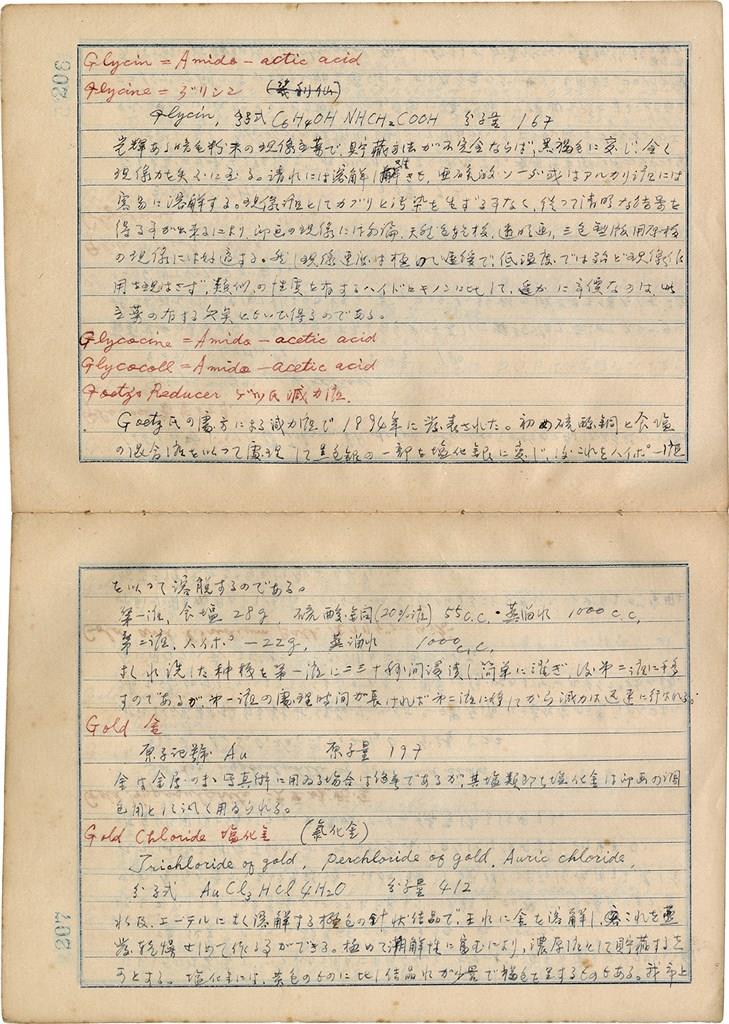 206
Glycin = Amido - actic acid
Glycine = グリシン
Glycin, 分子式 C6H4OH NHCH2COOH 分子量 167
光輝ある 色粉末の現像主薬で、貯蔵方法が不完全ならば、黒褐色に変じ、全く
現像力を失ふに至る。清水には溶解 亜硫酸ソーダ或はアルカリ液には
容易に溶解する。現像液としてカブリと汚染を生ずる なく、従つて清明な
得る が出来るにより、印画の現像には勿論、天然色 、透明画、三色製版用
の現像には 適する。 し現像速度は極めて緩で、低温度では殆ど現像作
用を現はさず、類似の性質を有するハイドロキノンに比して、遥かに高価なのは、此
主薬の有する欠点といひ得るのである。
Glycocine = Amido - acetic acid
Glycocoll = Amido - acetic acid
Goetz's Reducer ゲッツ氏減力液.
Goetz氏の處方による減力液で1894年に発表された。初め硫酸銅と食塩
の混合液を以つて處理して黒色銀の一部を塩化銀に変じ、後これをハイポー液
を以つて溶脱するのである。
第一液、食塩 28g、硫酸銅(20%液) 55c.c.・蒸溜水 1000 c.c.
第二液、ハイポー22g、蒸溜水 1000c.c.
よく水洗した種板を第一液に二三十秒間浸漬し、簡単に濯ぎ、後第二液に移
すのであるが、第一液の處理時間が長ければ第二液に移してから減力は迅速に行はれる。
Gold 金
原子記號 Au 原子量 197
金は金属のまゝ写真術に用ゐる場合は稀であるが、其塩類即ち塩化金は印画の調
色用として広く用ゐられる。
Gold Chloride 塩化金 (氯化金)
Trichloride of gold, Perchloride of gold, Auric chloride,
分子式 AuCl3HCl4H2O 分子量 412
水及、エーテルによく溶解する橙色の針状結晶で、王水に金を溶解し、これを蒸
発乾燥せしめて作る ができる。極めて潮解性に富むにより、濃厚液として貯蔵するを
とする。塩化金には、黄色のものに比し結晶水が少量で褐色を呈するものもある。我市上
207